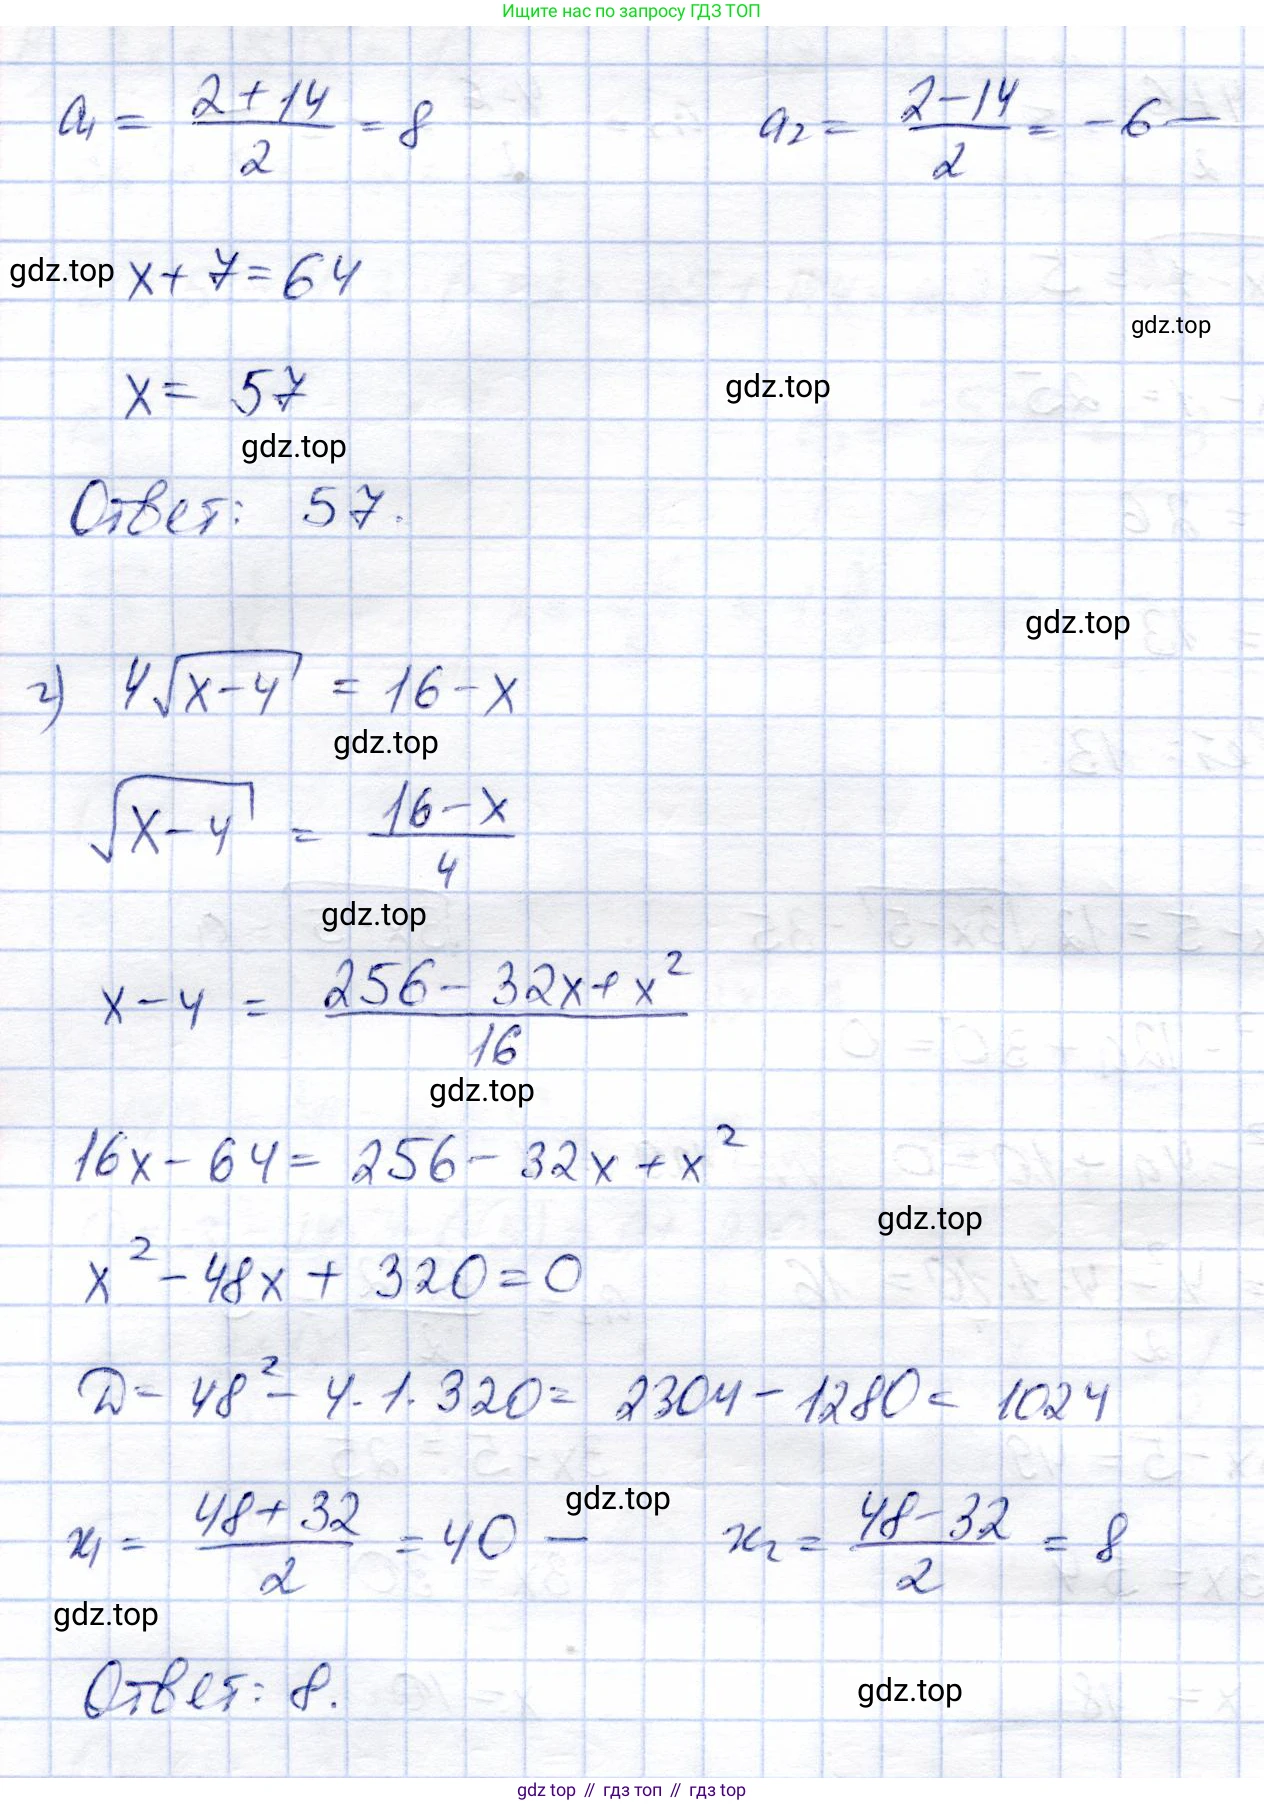 Ищите нас по запросу ГДЗ ТОП
a₁ = (2 + 14)/2 = 8 a₂ = (2 - 14)/2 = -6 —
gdz.top x + 7 = 64
gdz.top
x = 57 gdz.top
gdz.top
Ответ: 57.
gdz.top
г) 4√(x-4) = 16 - x
gdz.top
√(x-4) = (16 - x)/4
gdz.top
x - 4 = (256 - 32x + x²)/16
gdz.top
16x - 64 = 256 - 32x + x²
gdz.top
x² - 48x + 320 = 0
D = 48² - 4·1·320 = 2304 - 1280 = 1024
gdz.top
x₁ = (48 + 32)/2 = 40 — x₂ = (48 - 32)/2 = 8
gdz.top
Ответ: 8.
gdz.top
gdz top // гдз топ // gdz top